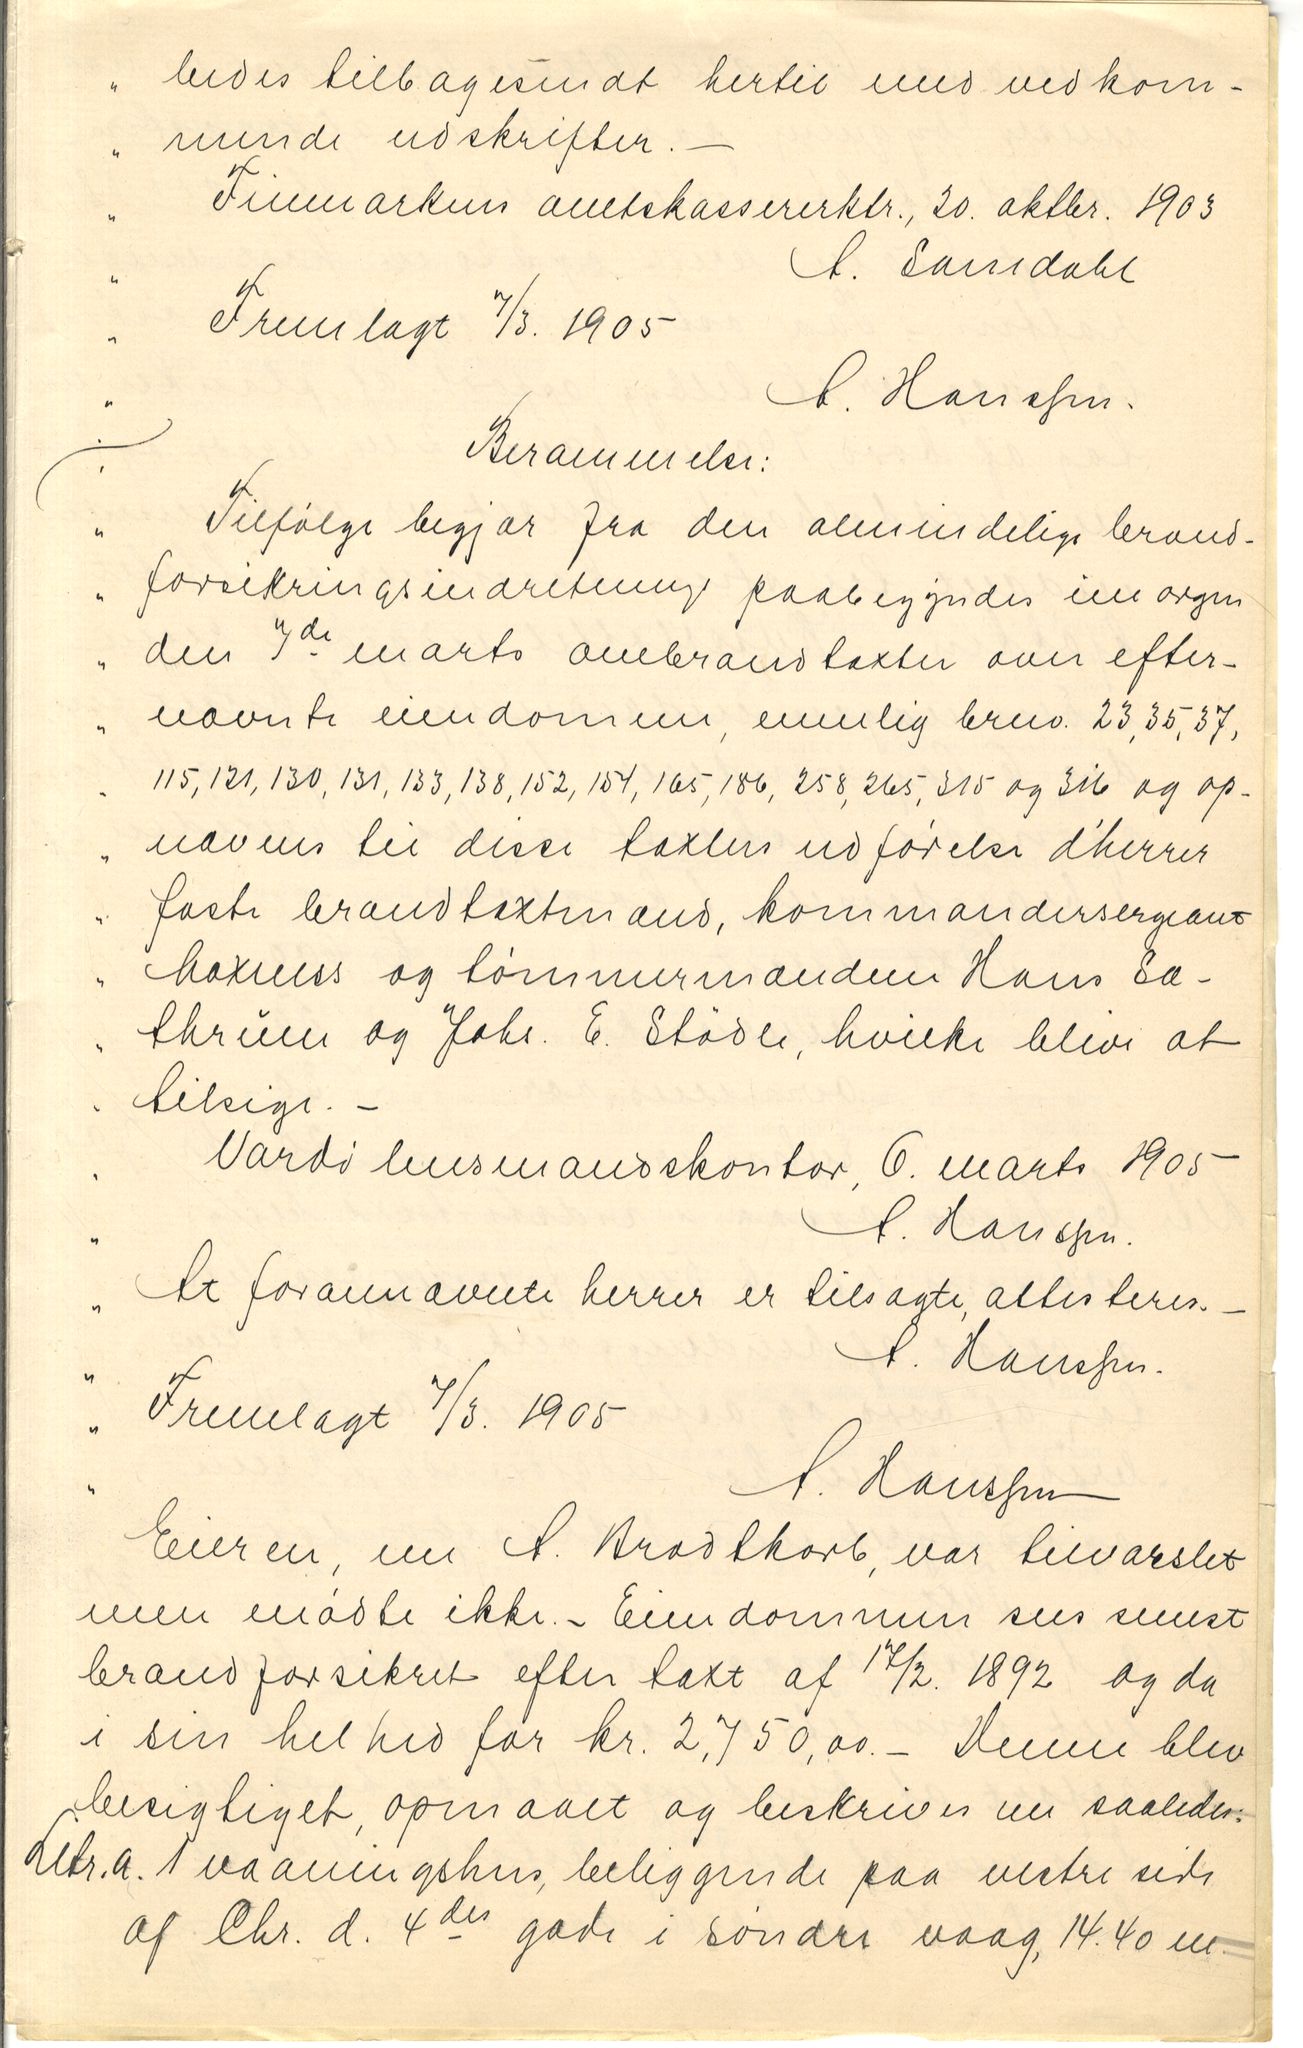 " bedes tilbagesendt hertil med vedkom-
" mende udskrifter. —
" Finmarkens amtskassererktr., 20. oktbr. 1903
" A. Samdahl
" Fremlagt 7/3. 1905
" A. Hanssen.
" Berammelse:
" Tilfølge begjær fra den almindelige brand-
" forsikringsindretning paabegyndes imorgen
" den 7de marts ombrandtaxter over efter-
" nævnte eiendomme, nemlig brno. 23, 35, 37,
" 115, 121, 130, 131, 133, 138, 152, 154, 165, 186, 258, 265, 315 og 316 og op-
" nævnes til disse taxters udførelse d'herrer
" faste brandtaxtmænd, kommandersergeant
" Moxness og tømmermændene Hans Sæ-
" thrum og Johs. E. Stødle, hvilke blive at
" tilsige. —
" Vardø lensmandskontor, 6. marts 1905
" A. Hanssen.
" At forannævnte herrer er tilsagte, attesteres. —
" A. Hanssen.
" Fremlagt 7/3. 1905
" A. Hanssen
Eieren, nu A. Brodtkorb, var tilvarslet
men mødte ikke. - Eiendommen sees senest
brandforsikret efter taxt af 17/2. 1892 og da
i sin helhed for kr. 2,750,00. — Denne blev
besigtiget, opmaalt og beskrives nu saaledes:
Litr. a. 1 vaaningshus, beliggende paa vestre side
af Chr. d. 4des gade i søndre vaag, 14.40 m.